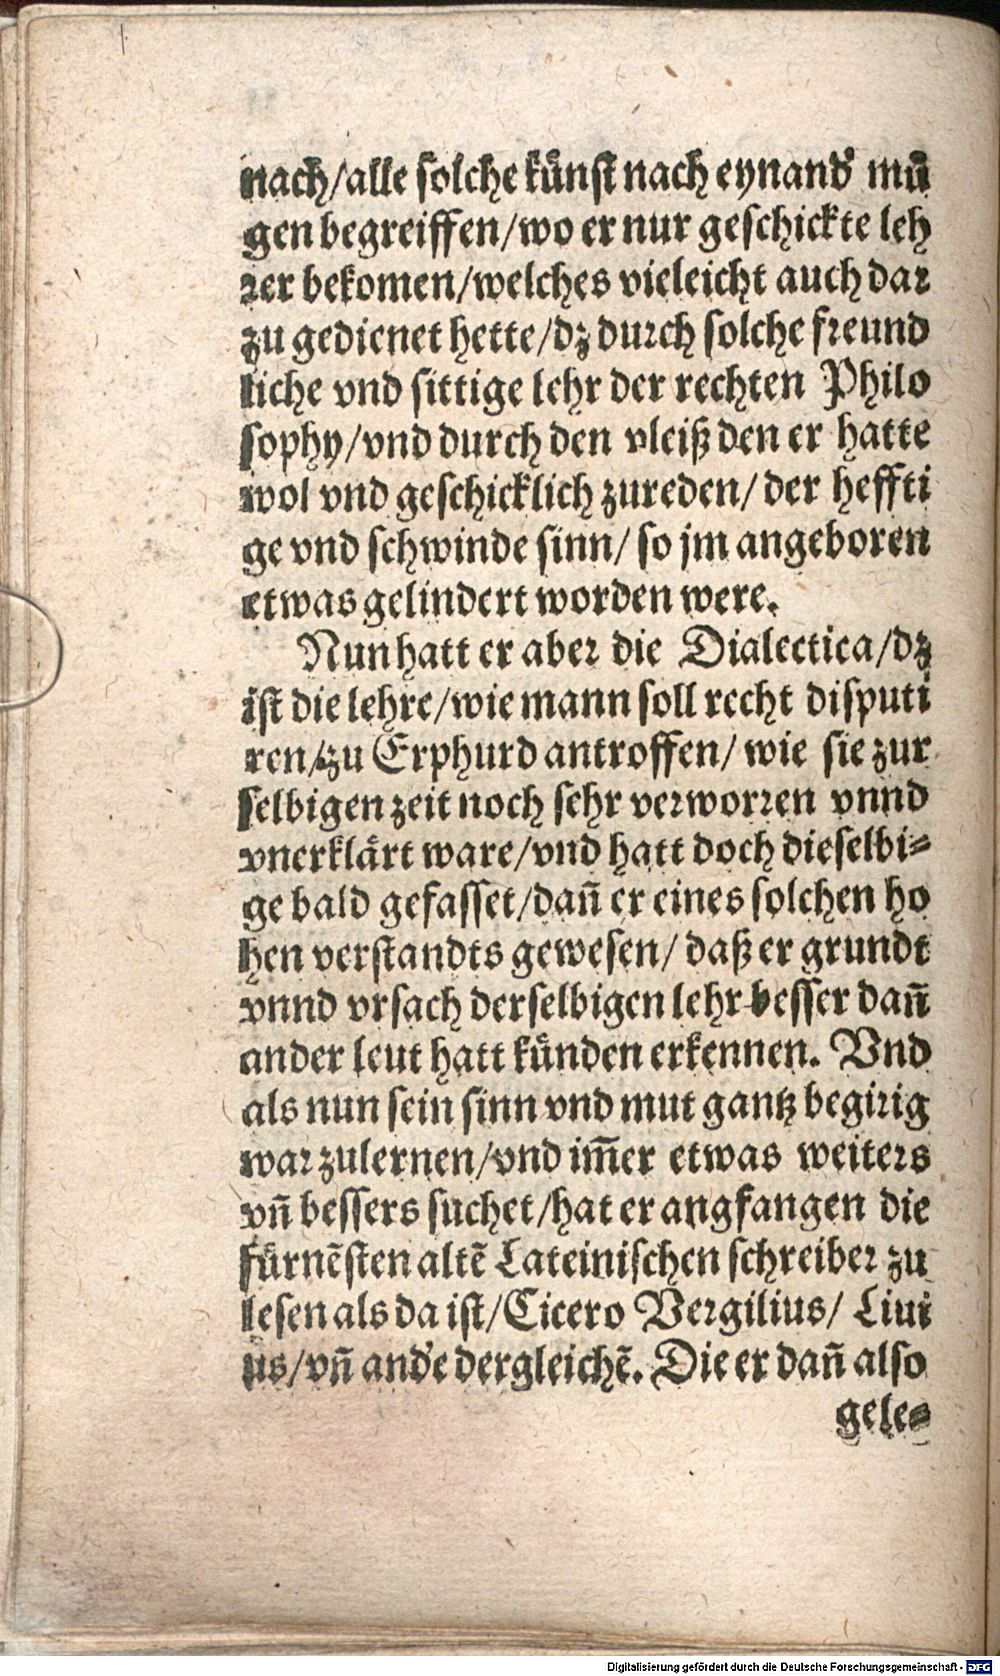 nach/alle solche kuͤnst nach eynand' muͤ
gen begreiffen/wo er nur geschickte leh
rer bekomen/welches vieleicht auch dar
zu gedienet hette/dz durch solche freund
liche vnd sittige lehr der rechten Philo
sophy/vnd durch den vleiß den er hatte
wol vnd geschicklich zureden/ der heffti
ge vnd schwinde sinn/ so jm angeboren
etwas gelindert worden were.
Nun hatt er aber die Dialectica/dz
ist die lehre/wie mann soll recht disputi
ren/zu Erphurd antroffen/ wie sie zur
selbigen zeit noch sehr verworren vnnd
vnerklaͤrt ware/vnd hatt doch dieselbi⸗
ge bald gefasset/dan̄ er eines solchen ho
hen verstandts gewesen/ daß er grundt
vnnd vrsach derselbigen lehr besser dan̄
ander leut hatt kuͤnden erkennen. Vnd
als nun sein sinn vnd mut gantz begirig
war zulernen/vnd im̄er etwas weiters
vn̄ bessers suchet/hat er angfangen die
fuͤrnē̄sten altē Lateinischen schreiber zu
lesen als da ist/Cicero Vergilius/ Liui
us/vn̄ and'e dergleichē. Die er dan̄ also
gele⸗
Digitalisierung gefördert durch die Deutsche Forschungsgemeinschaft - DFG